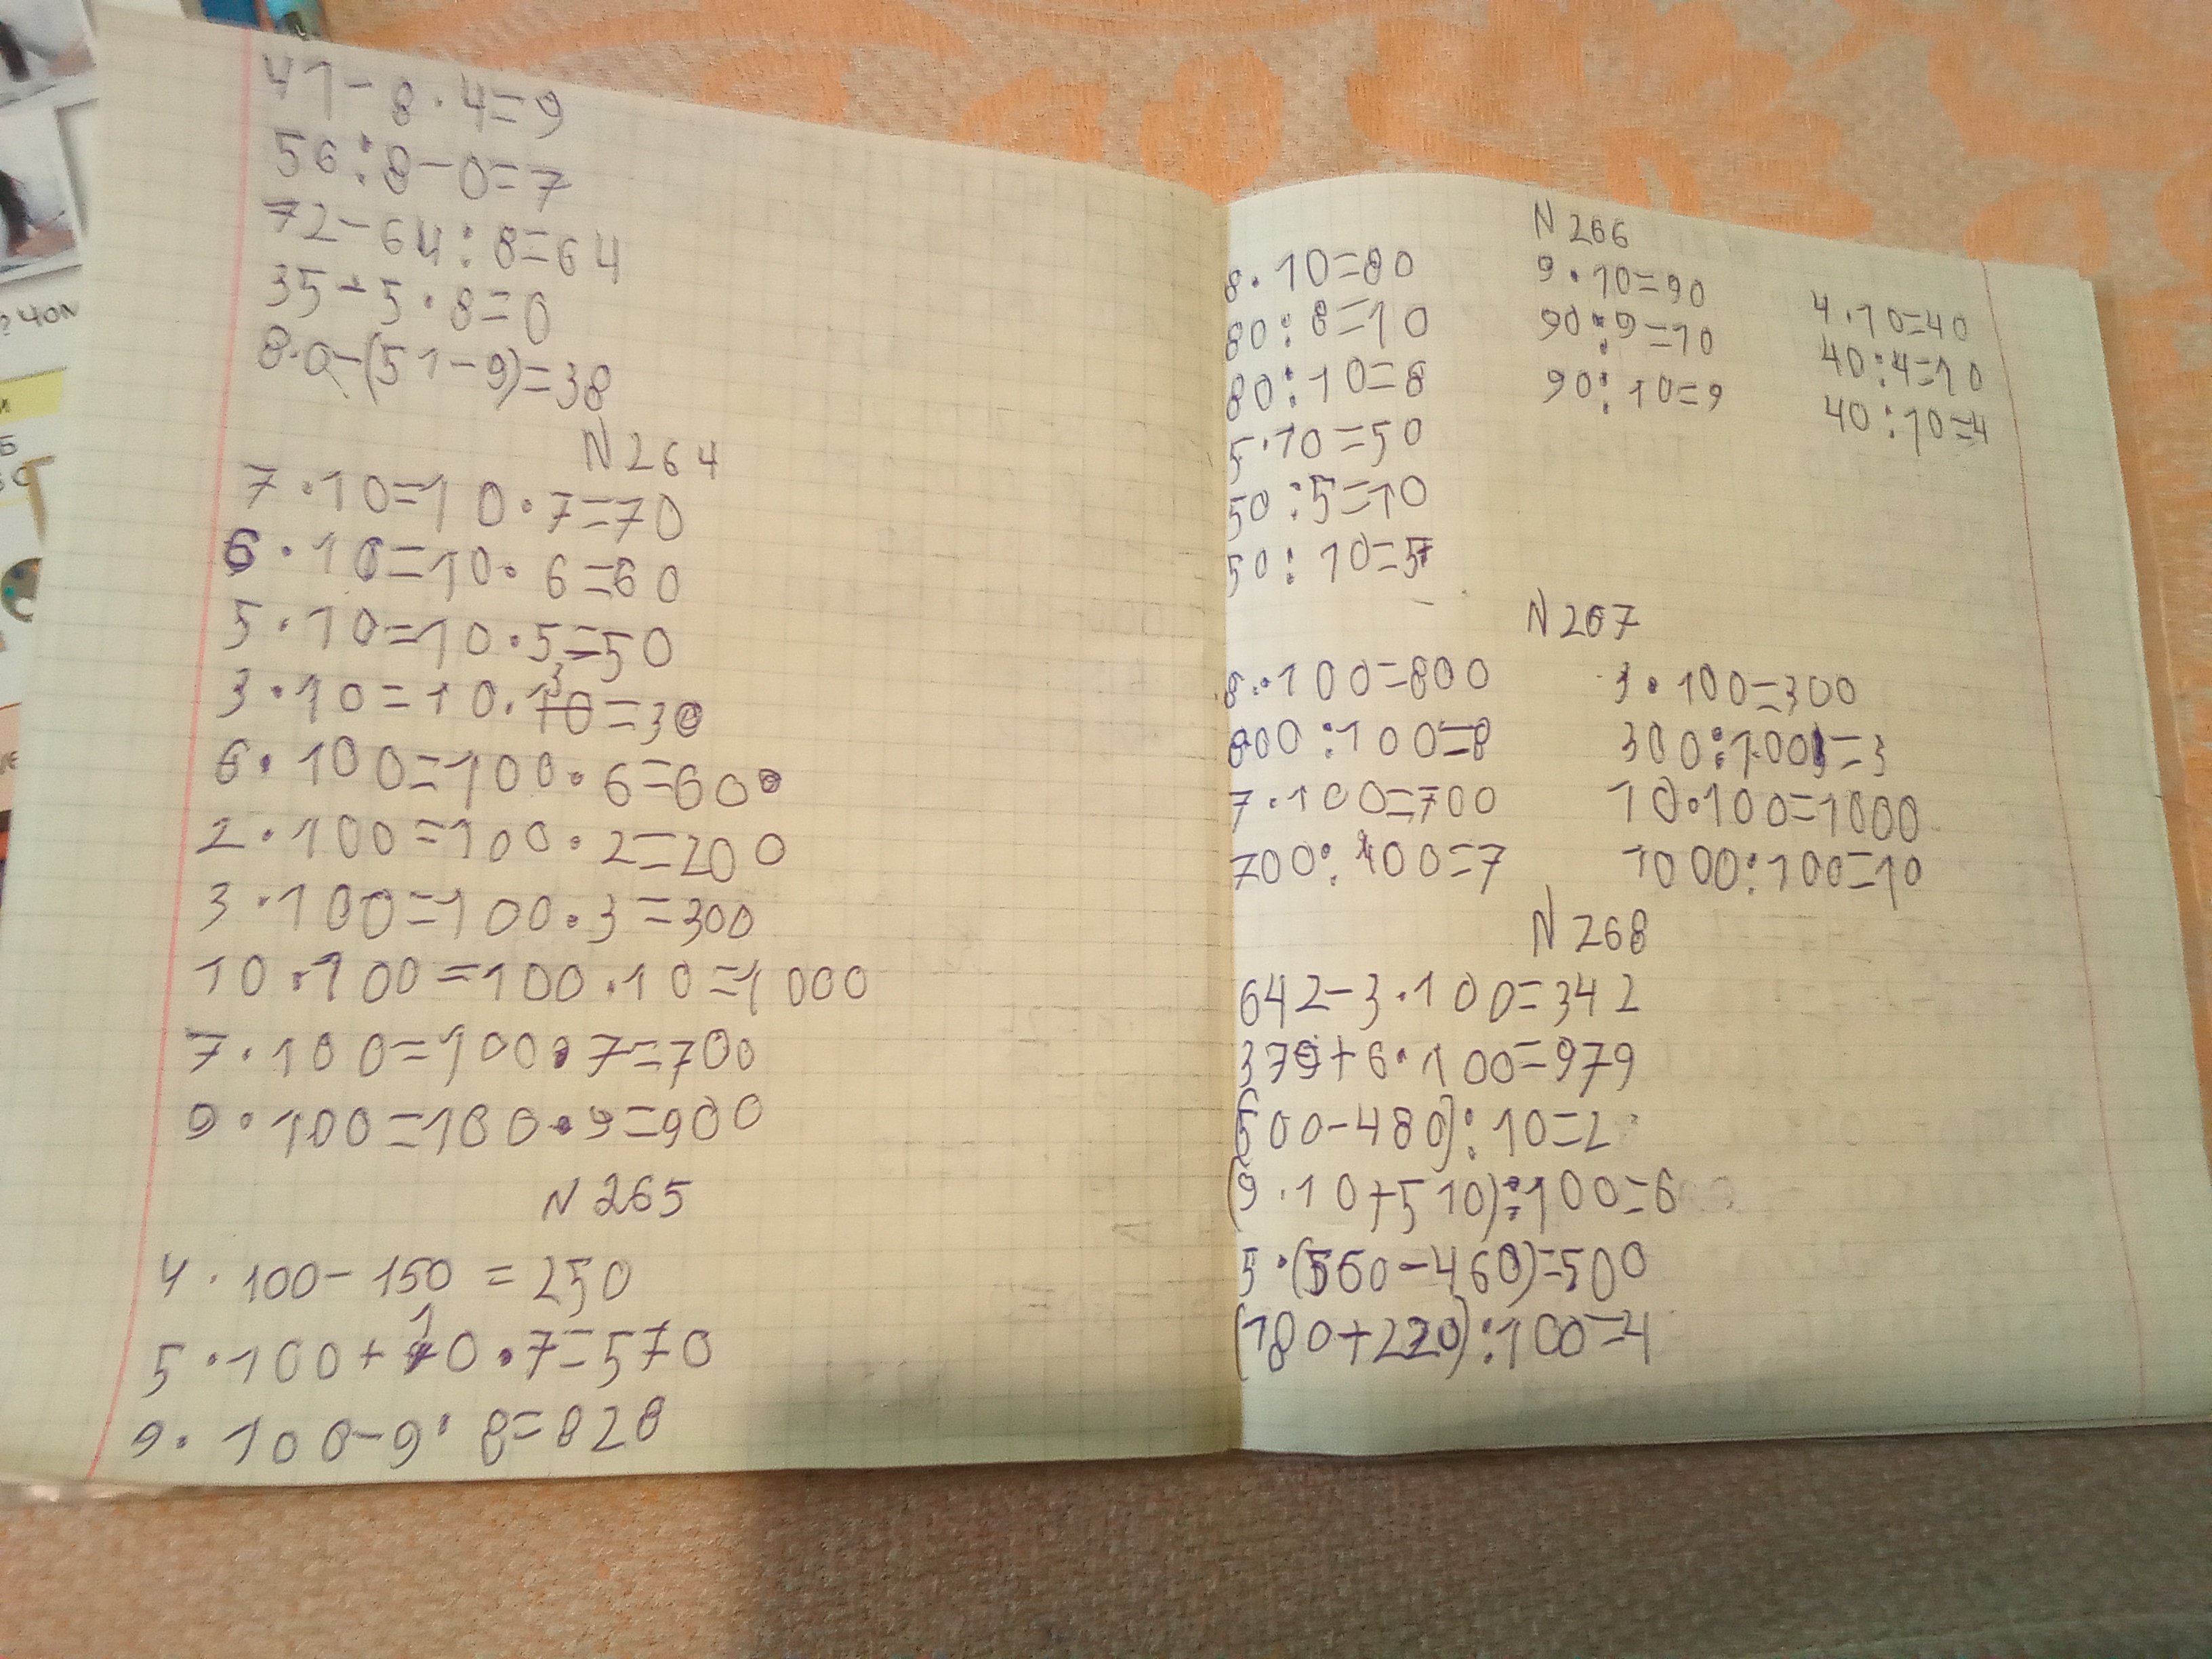 41-8·4=9
56:8-0=7
72-64:8=64
35-5·8=0
8·0-(51-9)=38
N264
7·10=10·7=70
6·10=10·6=60
5·10=10·5=50
3·10=10·3=30
6·100=100·6=600
2·100=100·2=200
3·100=100·3=300
10·100=100·10=1000
7·100=100·7=700
9·100=100·9=900
N265
4·100-150=250
5·100+10·7=570
9·100-9·8=828
N266
8·10=80
80:8=10
80:10=8
5·10=50
50:5=10
50:10=5
9·10=90
90:9=10
90:10=9
4·10=40
40:4=10
40:10=4
N267
8·100=800
800:100=8
7·100=700
700:100=7
3·100=300
300:100=3
10·100=1000
1000:100=10
N268
642-3·100=342
379+6·100=979
(500-480):10=2
(9·10+510):100=6
5·(560-460)=500
(180+220):100=4